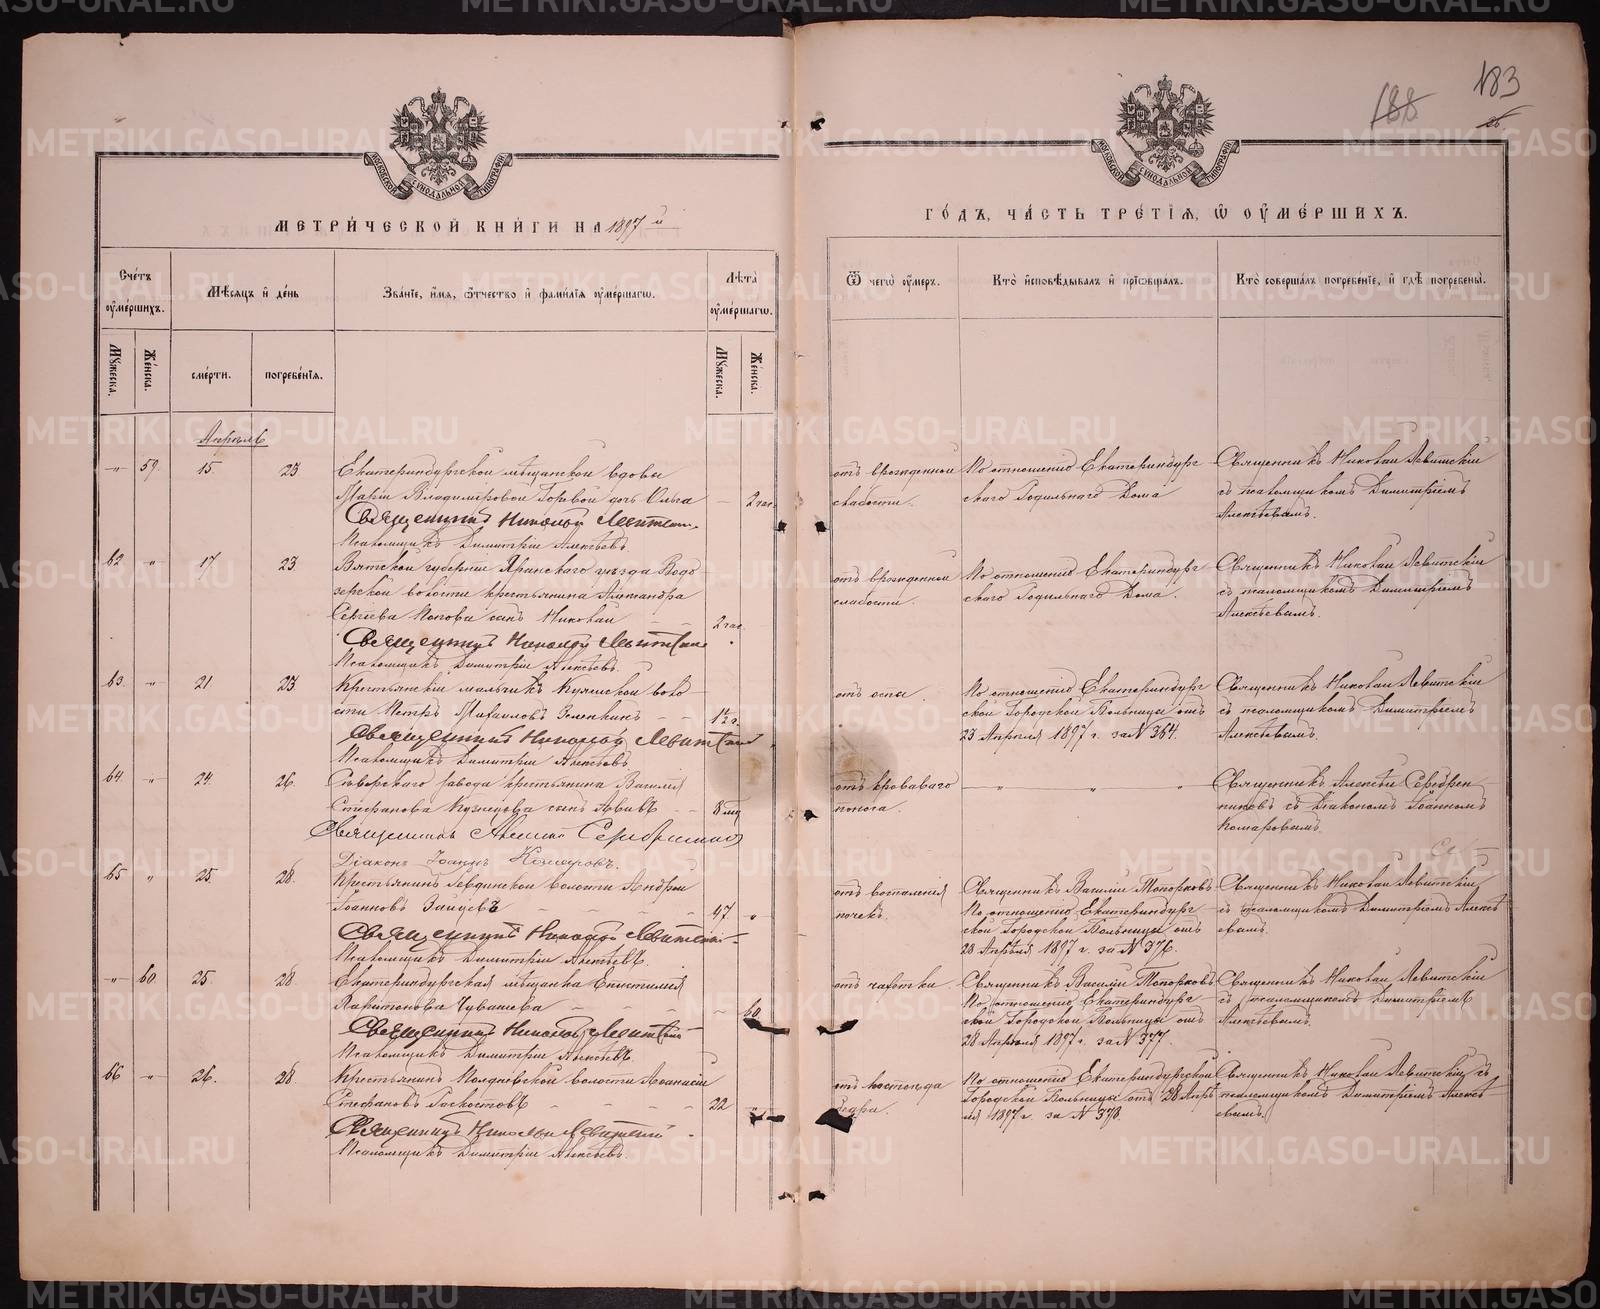 183
188
26
МОСКОВСКОЙ СѴНОДАЛЬНОЙ ТИПОГРАФІИ
МОСКОВСКОЙ СѴНОДАЛЬНОЙ ТИПОГРАФІИ
МЕТРИ́ЧЕСКОЙ КНИ́ГИ НА 1897 й
ГО́ДЪ, ЧА́СТЬ ТРЕ́ТІѦ, Ѿ ОУМЕ́РШИХЪ.
Сче́тъ оумѐршихъ.
Мѣсяцъ и день
Зва́ніе, и́мя, о́тчество и фами́лія оуме́ршагѡ.
Лѣта̀ оуме́ршагѡ.
Ѿ чегѡ̀ оу́меръ.
Кто̀ исповѣ́дывалъ и прїѡбща́лъ.
Кто̀ соверша́лъ погребе́ніе, и гдѣ̀ погребены̀.
Мꙋ́жеска.
Же́нска.
сме́рти.
погребе́нія.
Мꙋ́жеска.
Же́нска.
Апрѣль
-"- 59. 15 23 Екатеринбургской мѣщанской вдовы
Маріи Владиміровой Горевой дочь Ольга - 2 час.
Священникъ Николай Левитскій
Псаломщикъ Димитрій Алексѣевъ.
отъ врожденной
слабости.
По отношенію Екатеринбург
скаго Родильнаго Дома
Священникъ Николай Левитскій
съ псаломщикомъ Димитріемъ
Алексѣевымъ.
62 " 17 23 Вятской губерніи Яранскаго уѣзда Водо
зерской волости крестьянина Александра
Сергѣева Попова сынъ Николай - - 2 час.
Священникъ Николай Левитскій
Псаломщикъ Димитрій Алексѣевъ.
отъ врожденной
слабости.
По отношенію Екатеринбург
скаго Родильнаго Дома.
Священникъ Николай Левитскій
съ псаломщикомъ Димитріемъ
Алексѣевымъ.
63. -"- 21 23 Крестьянскій мальчикъ Куяшской воло
сти Петръ Михаиловъ Зеленкинъ - - 1½ г.
Священникъ Николай Левитскій
Псаломщикъ Димитрій Алексѣевъ
отъ оспы.
По отношенію Екатеринбург
ской Городской Больницы отъ
23 Апрѣля 1897 г. за № 364.
Священникъ Николай Левитскій
съ псаломщикомъ Димитріемъ
Алексѣевымъ.
64 " 24. 26. завода крестьянина Василія
Стефанова Кузнецова сынъ - - 8 мѣс
Священникъ Алексій Серебренниковъ
Діаконъ Іоаннъ Комаровъ.
отъ кроваваго
поноса.
" " "
Священникъ Алексѣй Серебрен
никовъ съ діакономъ Іоанномъ
Комаровымъ.
65 " 25. 28. Крестьянинъ волости Андрей
Іоанновъ Зайцевъ - - - - 47. "
Священникъ Николай Левитскій
Псаломщикъ Димитрій Алексѣевъ.
отъ воспаленія
почекъ.
Священникъ Василій Топорковъ
По отношенію Екатеринбург
ской Городской Больницы отъ
28 Апрѣля 1897 г. за № 376.
Священникъ Николай Левитскій
съ псаломщикомъ Димитріемъ Алексѣ
евымъ.
-"- 60. 25. 28. Екатеринбургская мѣщанка Епистимія
Харитонова Чувашева - - - 60
Священникъ Николай Левитскій
Псаломщикъ Димитрій Алексѣевъ.
отъ чахотки.
Священникъ Василій Топорковъ
По отношенію Екатеринбург
ской Городской Больницы отъ
28 Апрѣля 1897 г. за № 377.
Священникъ Николай Левитскій
съ псаломщикомъ Димитріемъ
Алексѣевымъ.
66 " 26. 28. Крестьянинъ Полдневской волости Аѳанасій
Стефановъ - - - - 22 "
Священникъ Николай Левитскій
Псаломщикъ Димитрій Алексѣевъ.
отъ костоѣда
бедра.
По отношенію Екатеринбургской
Городской Больницы отъ 28 Апрѣ
ля 1897 г. за № 378.
Священникъ Николай Левитскій съ
псаломщикомъ Димитріемъ Алексѣ
евымъ.
METRIKI.GASO-URAL.RU